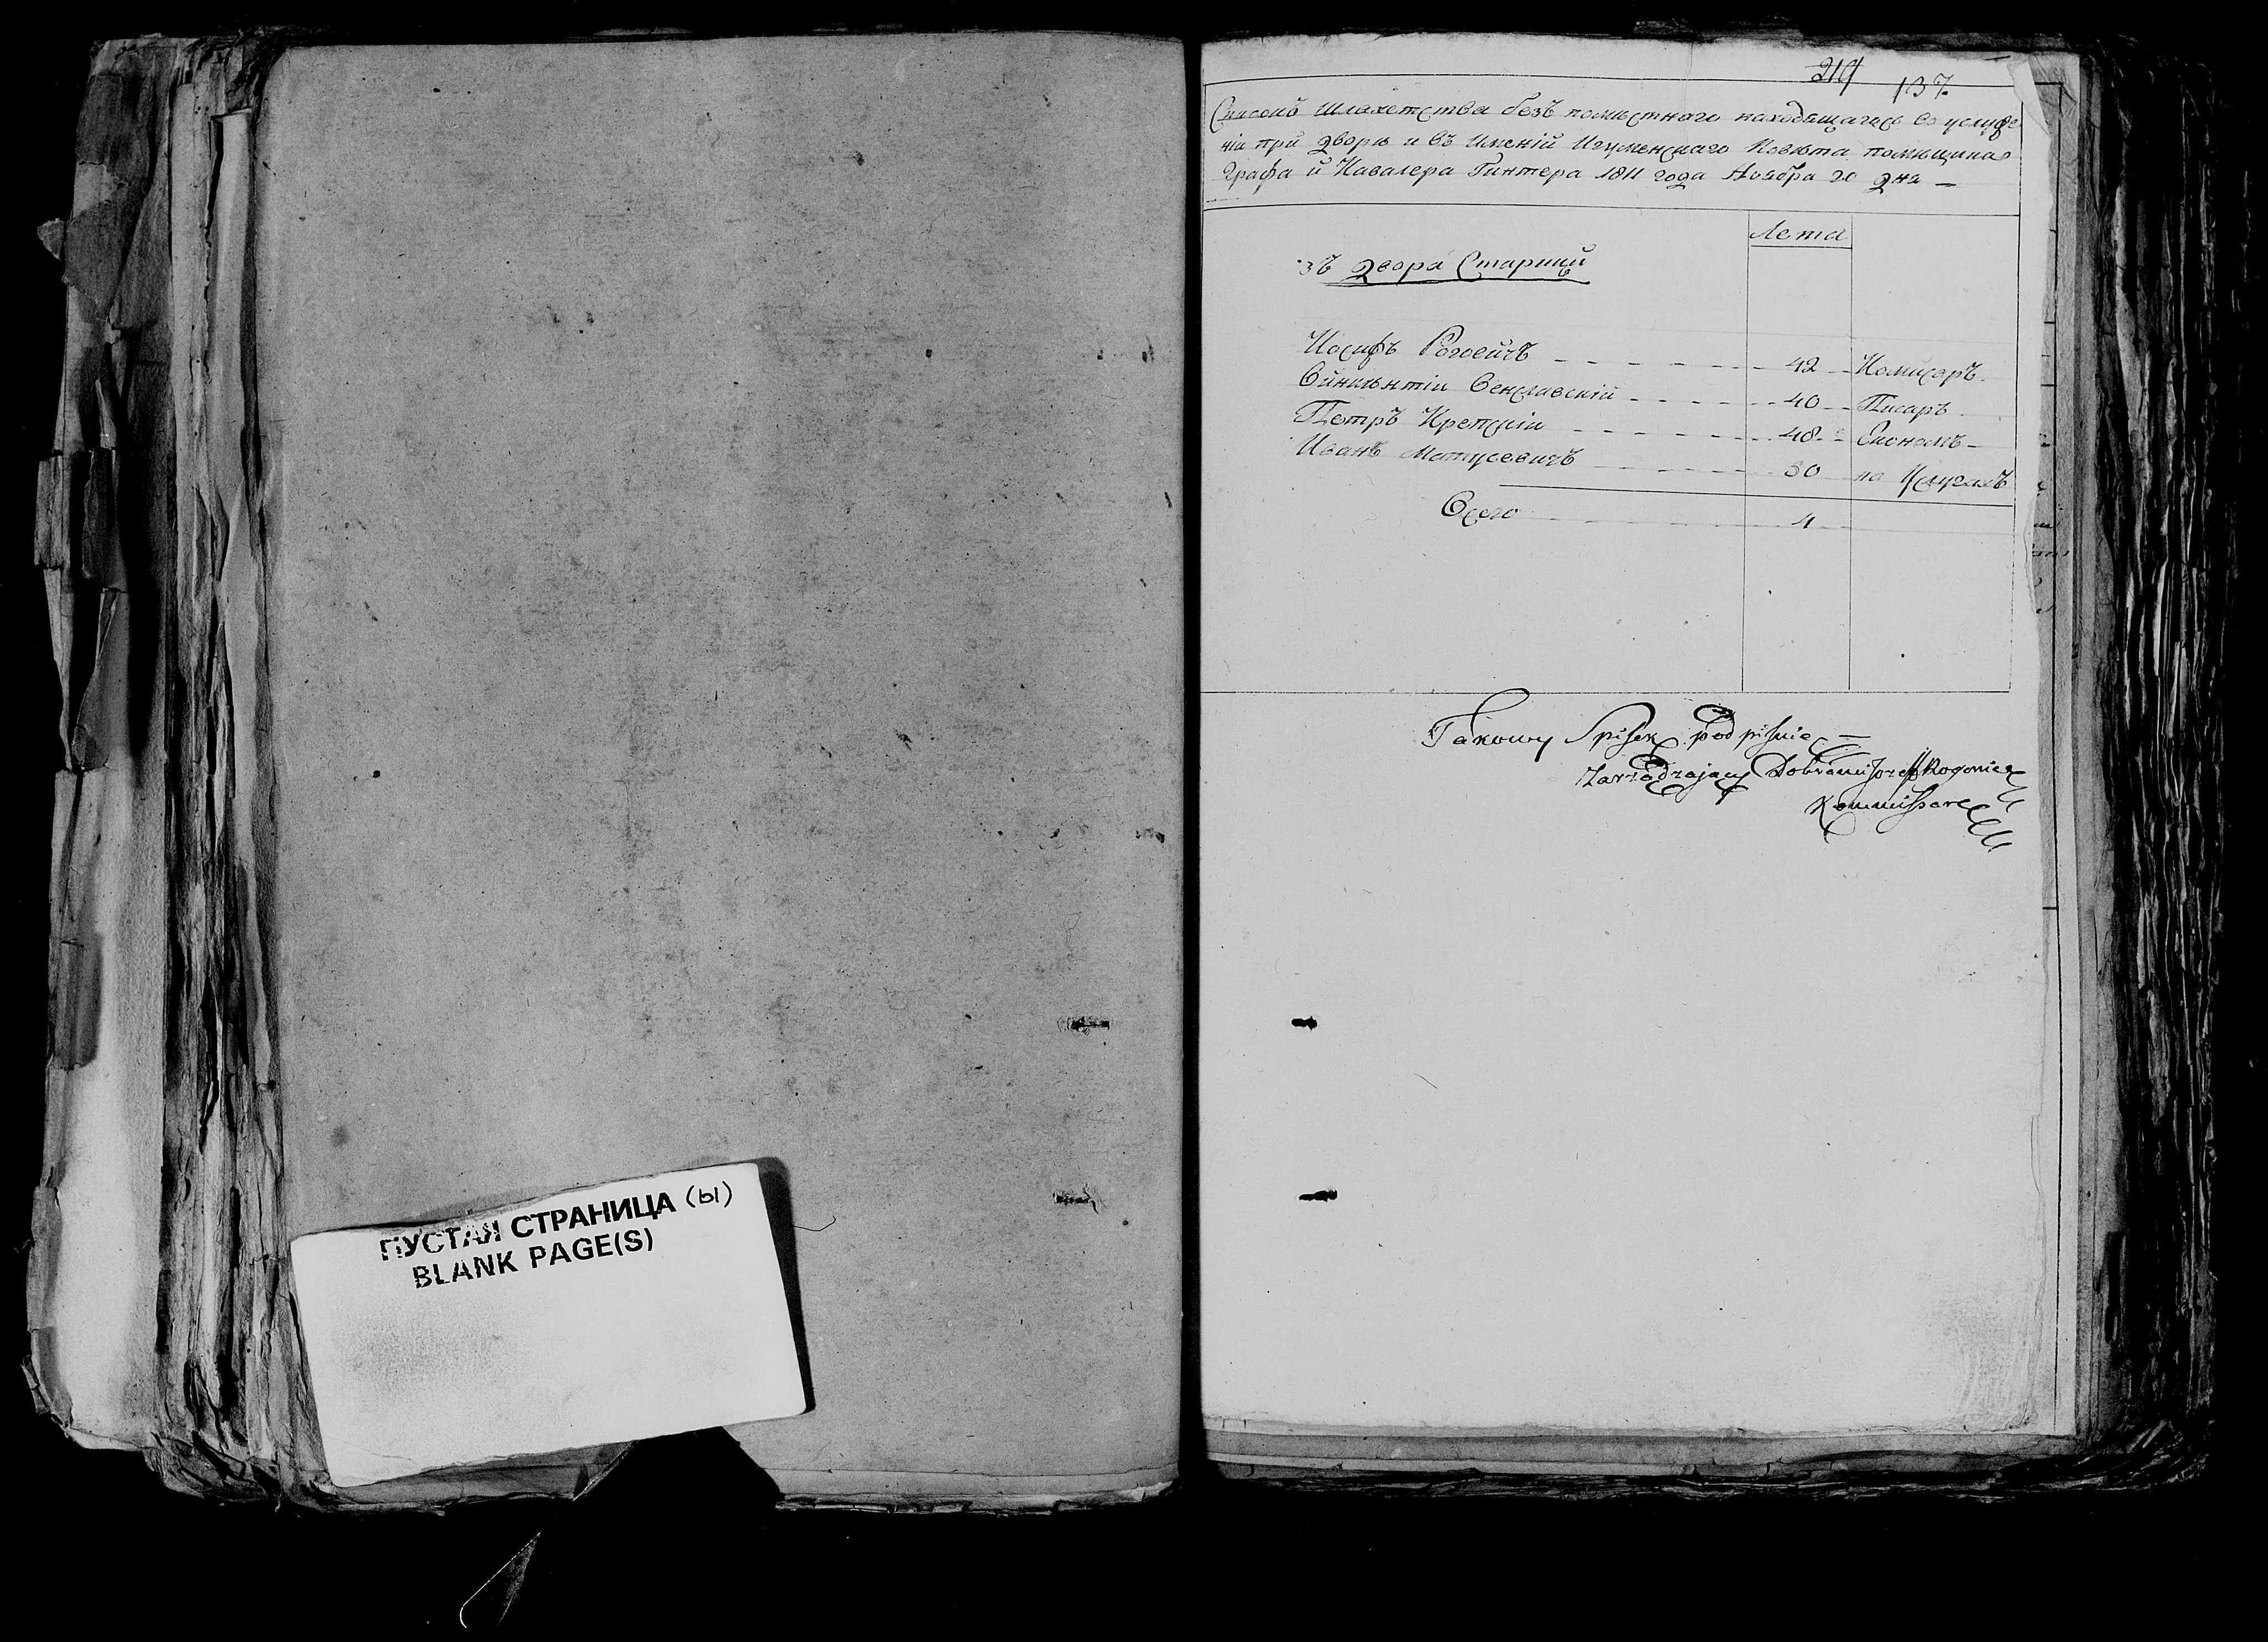 ПУСТАЯ СТРАНИЦА (ы)
BLANK PAGE(S)
219 137
Списокъ Шляхетства безъ помѣстнаго находящагося во услуже
нїи при дворѣ и въ Имѣнїй Игуменскаго Повѣта помѣщика
Графа й Кавалера Гинтера 1811 года Ноября 20 дня —
Лета
зъ двора Старицй
Иосифъ Роговичъ 42 Комисаръ
Винцентїи Венславскїй 40 Писаръ
Петръ Крепскїи 48 Економъ
Иванъ Матусевичъ 30 на Услугахъ
Всего 4
Takowy Spisek podpisuię —
Zarządzaiący Dobrami Jozeff Rogowicz
Kommissarz